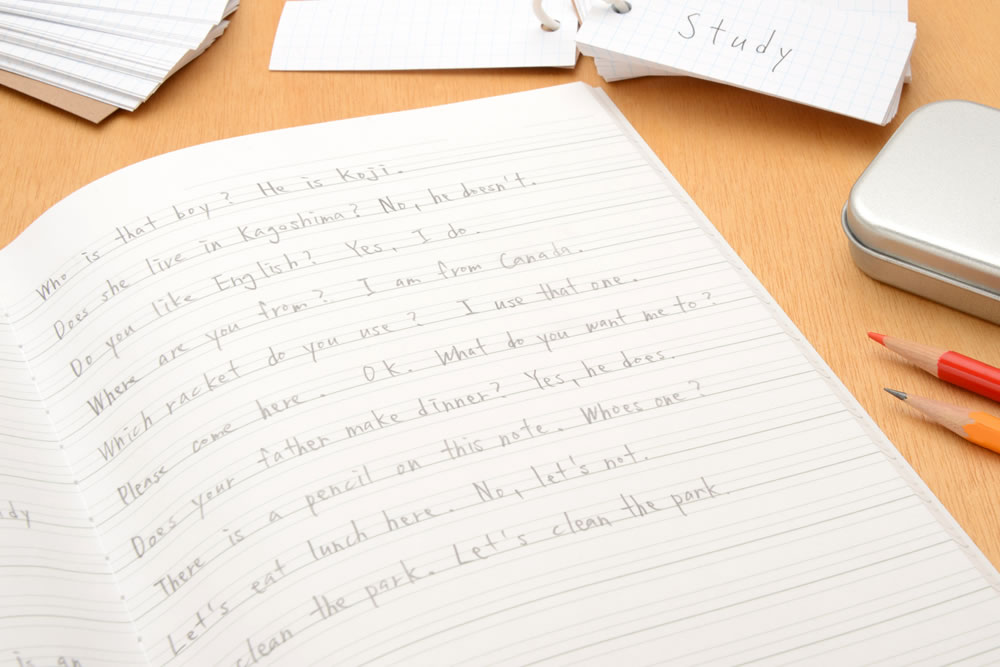 Study
Who is that boy? He is Koji.
Does she live in Kagoshima? No, he doesn't.
Do you like English? Yes, I do.
Where are you from? I am from Canada.
Which racket do you use? I use that one.
Please come here. Ok. What do you want me to?
Does your father make dinner? Yes, he does.
There is a pencil on this note. Whoes one?
Let's eat lunch here. No, let's not.
clean the park. Let's clean the park.
is an